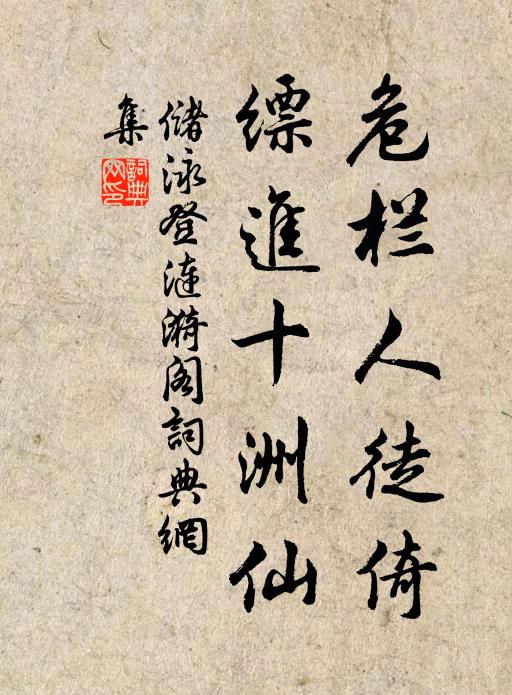 危栏人徒倚
缥進十洲仙
储泳登涟漪阁詞典網
集
詞典网印